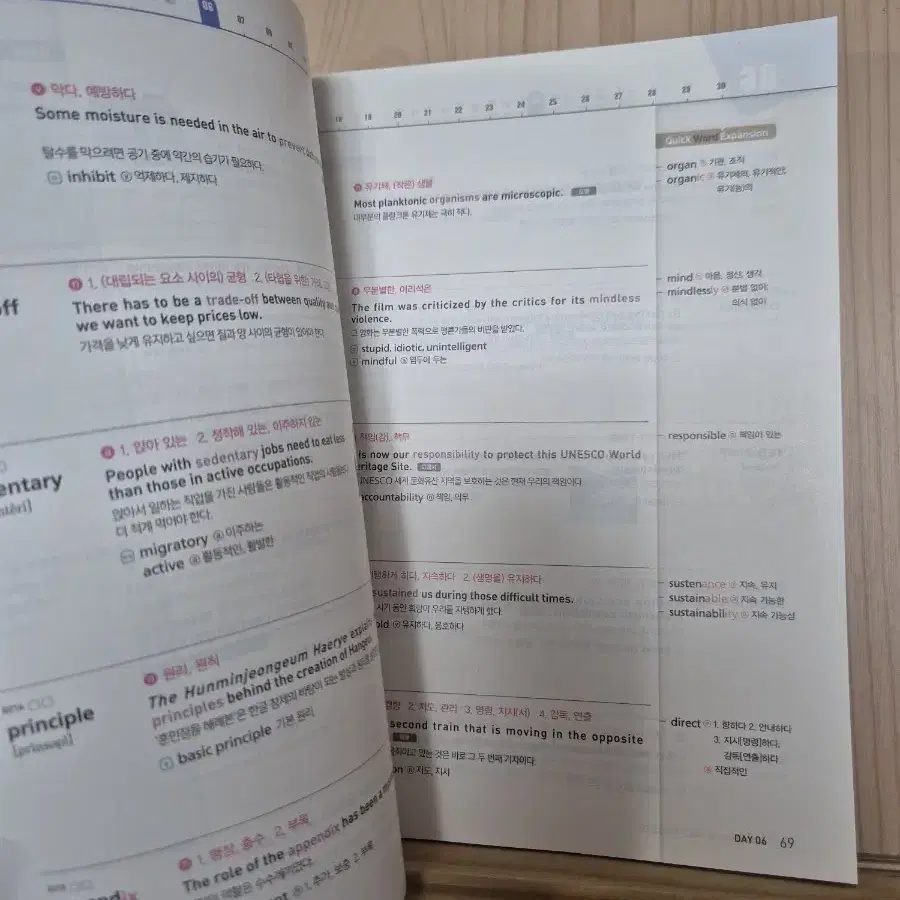 06
07
08
ⓥ 막다, 예방하다
Some moisture is needed in the air to prevent
탈수를 막으려면 공기 중에 약간의 습기가 필요하다.
inhibit ⓥ 억제하다, 제지하다
off
ⓝ 1. (대립되는 요소 사이의) 균형 2. (타협을 위한
There has to be a trade-off between quality
we want to keep prices low.
가격을 낮게 유지하고 싶으면 질과 양 사이의 균형이 있어야 한다.
entary
ⓐ 1. 앉아 있는 2. 정착해 있는, 이주하지 않는
People with sedentary jobs need to eat less
than those in active occupations.
앉아서 일하는 직업을 가진 사람들은 활동적인 직업의 사람들보다
더 적게 먹어야 한다.
migratory ⓐ 이주하는
active ⓐ 활동적인, 활발한
principle
ⓝ 원리, 원칙
The Hunminjeongeum Haerye explains
principles behind the creation of Hangeul
basic principle 기본 원리
ⓝ 1. 맹장, 충수 2. 부록
The role of the appendix has been a
ⓝ 1. 추가, 보충 2. 부록
18 19 20 21 22 23 24 25 26 27 28 29 30
Quick Word Expansion
ⓝ 유기체, (작은) 생물
Most planktonic organisms are microscopic.
대부분의 플랑크톤 유기체는 극히 작다.
organ ⓝ 기관, 조직
organic ⓐ 유기체의, 유기적인,
유기(농)의
ⓐ 무분별한, 어리석은
The film was criticized by the critics for its mindless
violence.
그 영화는 무분별한 폭력으로 평론가들의 비판을 받았다.
stupid, idiotic, unintelligent
mindful ⓐ 염두에 두는
mind ⓝ 마음, 정신, 생각
mindlessly ⓐⓓ 분별 없이,
의식 없이
책임(감), 책무
is now our responsibility to protect this UNESCO World
eritage Site.
UNESCO 세계 문화유산 지역을 보호하는 것은 현재 우리의 책임이다.
accountability ⓝ 책임, 의무
responsible ⓐ 책임이 있는
지속하다 2. (생명을) 유지하다
sustained us during those difficult times.
시기 동안 희망이 우리를 지탱하게 했다.
old ⓥ 유지하다, 옹호하다
sustenance ⓝ 지속, 유지
sustainable ⓐ 지속 가능한
sustainability ⓝ 지속 가능성
2. 지도, 관리 3. 명령, 지시(서) 4. 감독, 연출
second train that is moving in the opposite
움직이고 있는 것은 바로 그 두 번째 기차이다.
on ⓝ 지도, 지시
direct ⓥ 1. 향하다 2. 안내하다
3. 지시[명령]하다,
감독[연출]하다
ⓐ 직접적인
DAY 06 69